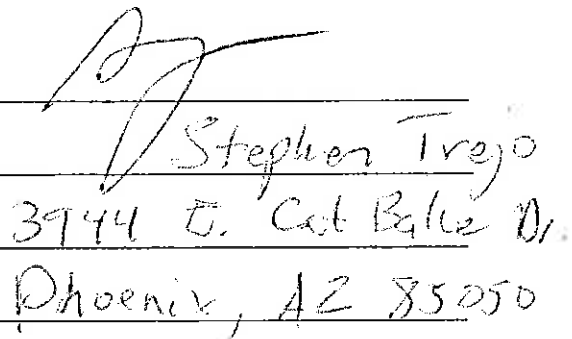 Stephen Trejo
3944 E. Cat Balue Dr
Phoenix, AZ 85050